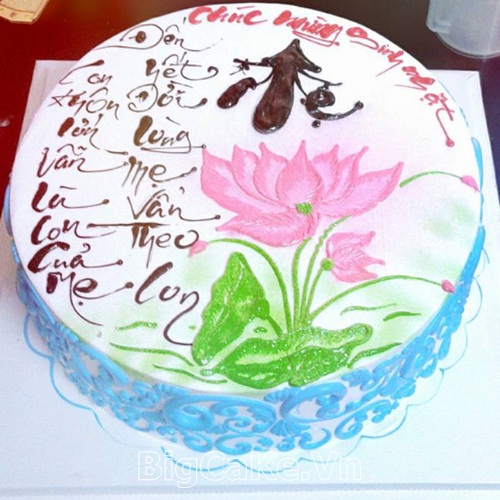 Chúc mừng Sinh nhật
Mẹ
Đến
Con hết
khôn Đời
lớn lòng
vẫn mẹ
là vẫn
con Theo
Của
Mẹ Con
BigCake.Vn